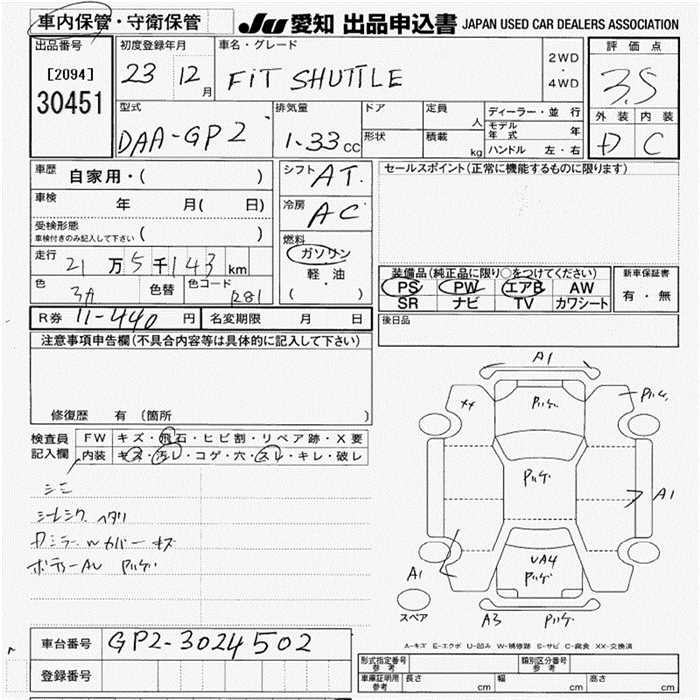 車内保管・守衛保管
JU 愛知 出品申込書 JAPAN USED CAR DEALERS ASSOCIATION
出品番号
[2094]
30451
初度登録年月
23 12月
車名・グレード
FiT SHUTTLE
2WD
・
4WD
評価点
3.5
外装 内装
D C
型式
DAA-GP2
排気量
1.33cc
ドア
形状
定員 人
積載 kg
ディーラー・並行
モデル年式 年
ハンドル 左・右
車歴 自家用・( )
車検 年 月( 日)
受検形態
車検付きのみ記入して下さい ( )
走行 21万5千143km
色 色替 色コード
シフト AT.
冷房 AC
燃料
ガソリン
軽・油
( ・ )
セールスポイント(正常に機能するものに限ります)
装備品(純正品に限り○をつけてください)
PS PW エアB AW
SR ナビ TV カワシート
新車保証書
有・無
後日品
R券 11-440円 名変期限 月 日
注意事項申告欄(不具合内容等は具体的に記入して下さい)
修復歴 有 (箇所 )
検査員
記入欄
FW キズ・飛石・ヒビ割・リペア跡・X要
内装 キズ・汚レ・コゲ・穴・スレ・キレ・破レ
シミ
ヘタリ
カバー キズ
A1
XX
A1
A1
UA4
A3
スペア
A-キズ E-エクボ U-凹み W-補修跡 S-サビ C-腐食 XX-交換済
車台番号 GP2-3024502
登録番号
形式指定番号
参考
類別区分番号
参考
車庫証明用
参考
長さ cm 幅 cm 高さ cm